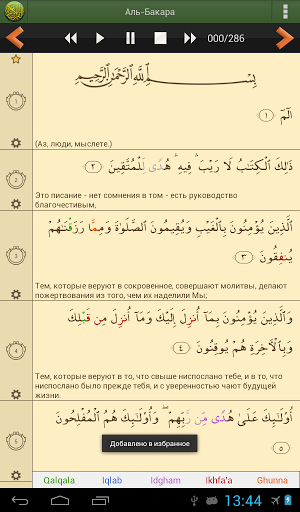 Аль-Бакара
000/286
بِسْمِ ٱللَّهِ ٱلرَّحْمَٰنِ ٱلرَّحِيمِ
1
الٓمٓ ﴿١﴾
(Аз, люди, мыслете.)
2
ذَٰلِكَ ٱلْكِتَٰبُ لَا رَيْبَ ۛ فِيهِ ۛ هُدًى لِّلْمُتَّقِينَ ﴿٢﴾
Это писание - нет сомнения в том - есть руководство
благочестивым,
3
ٱلَّذِينَ يُؤْمِنُونَ بِٱلْغَيْبِ وَيُقِيمُونَ ٱلصَّلَوٰةَ وَمِمَّا رَزَقْنَٰهُمْ
يُنفِقُونَ ﴿٣﴾
Тем, которые веруют в сокровенное, совершают молитвы, делают
пожертвования из того, чем их наделили Мы;
4
وَٱلَّذِينَ يُؤْمِنُونَ بِمَآ أُنزِلَ إِلَيْكَ وَمَآ أُنزِلَ مِن قَبْلِكَ
وَبِٱلْءَاخِرَةِ هُمْ يُوقِنُونَ ﴿٤﴾
Тем, которые веруют в то, что свыше ниспослано тебе, и в то, что
ниспослано было прежде тебя, и с уверенностью чают будущей
жизни.
5
أُو۟لَٰٓئِكَ عَلَىٰ هُدًى مِّن رَّبِّهِمْ ۖ وَأُو۟لَٰٓئِكَ هُمُ ٱلْمُفْلِحُونَ
﴿٥﴾
Добавлено в избранное
Qalqala Iqlab Idgham Ikhfa'a Ghunna
13:44